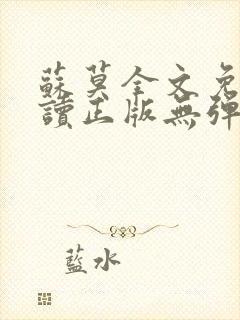 蘇莫全文免
讀正版無彈
藍水